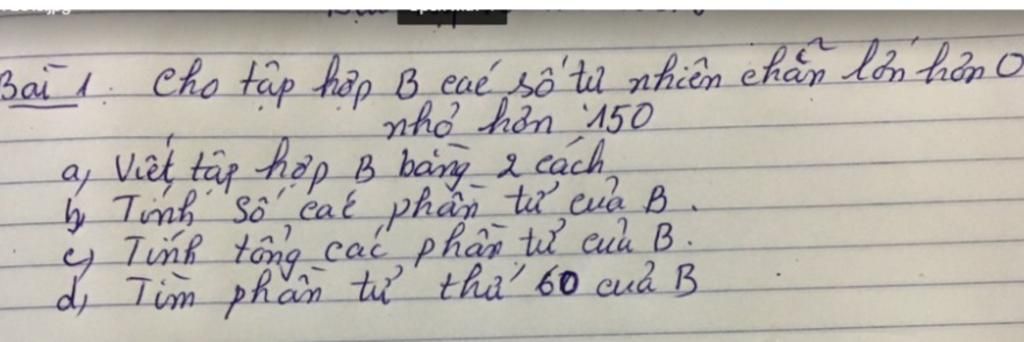 Bài 1. Cho tập hợp B các số tự nhiên chẵn lớn hơn 0
nhỏ hơn 150
a, Viết tập hợp B bằng 2 cách
b, Tính số các phần tử của B.
c, Tính tổng các phần tử của B.
d, Tìm phần tử thứ 60 của B